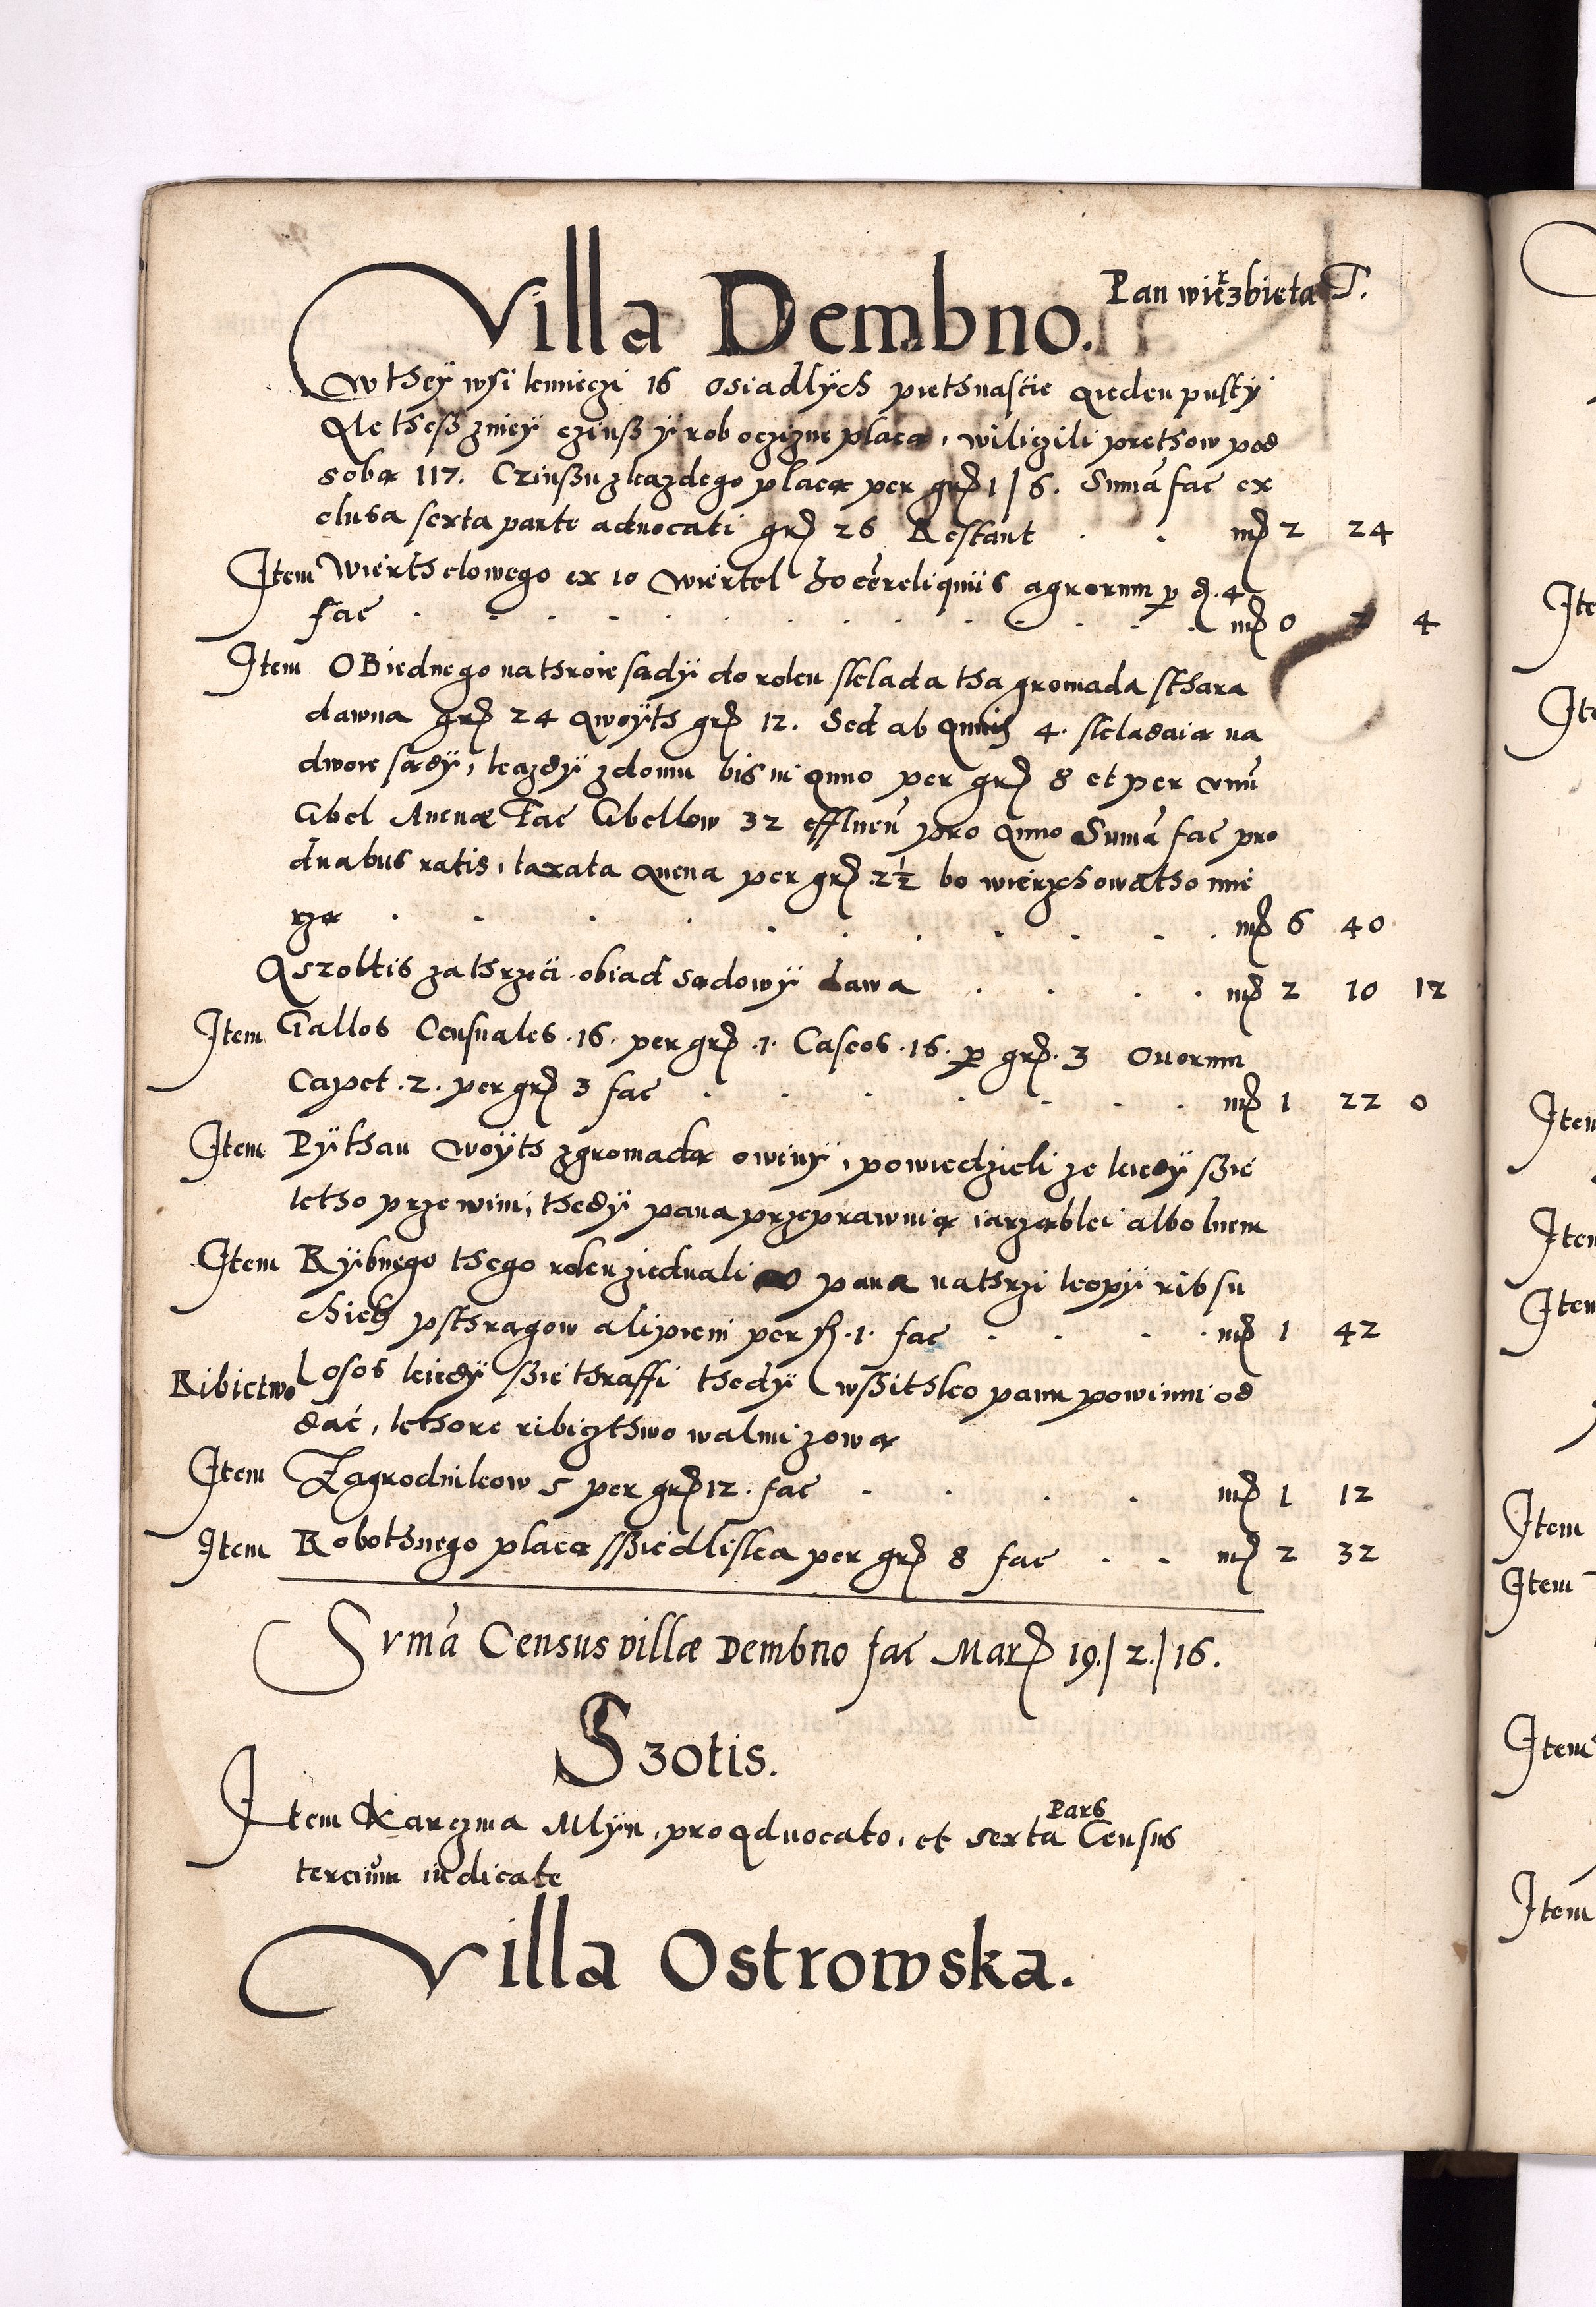 Villa Dembno. Pan wierzbieta T.
W they wsi kmieczi 16 osiadlÿch piethnascie A ieden pustÿ
Ale thesß zniey czinsß ÿ roboczizne placą, wiliczili prethow pod
sobą 117. Czinsßu zkazdego placą per gr 1/6. Sumā fac ex
clusa sexta parte advocati gr 26 Restant . . mr 2 24
Item Wierthelowego ex 10 wiertel reliquiis agrorum p 4
fac . . . . . mr 0 2 4
Item OBiednego na throie sadÿ do roku sklada tha gromada sthara
dawna gr 24 A woÿth gr 12. Sed ab Annis 4. skladaią na
dwoie sadÿ, kazdÿ zdomu bis in Anno per gr 8 et per vnū
Cibel Auenæ Fac Cibellow 32 effluen̄ pro Anno Sumā fac pro
duabus ratis, taxata Auena per gr 2½ bo wierzchowatho mie
rzą . . . . . mr 6 40
A szoltis za thrzeci obiad sądowÿ dawa . . . mr 2 10 12
Item Gallos Censuales .16. per gr .1. Caseos .16. p gr. 3 Ouorum
Capet .2. per gr 3 fac . . . . mr 1 22 0
Item Pÿthan woÿth zgromadą o winÿ, powiedzieli ze kiedÿ sßie
ktho przewini, thedÿ pana przeprawuią iarząbki albo lnem
Item Rÿbnego thego roku ziednali pana na thrzi kopÿ rib su
chich psthragow a lipieni per fl .1. fac . . . . mr 1 42
Ribictwo Losos kiedÿ sßie thraffi thedÿ wsßithko panu powinni od
dać, kthore ribicztwo walnie zową
Item Zagrodnikow 5 per gr 12. fac . . . . mr 1 12
Item Robothnego placą z sßiedliska per gr 8 fac . . mr 2 32
Svmā Census villæ Dembno fac Mar 19./2./16.
Szotis.
Item Karczma Mlÿn, pro Aduocato, et sexta Pars Census
tercium iudicate
Villa Ostrowska.